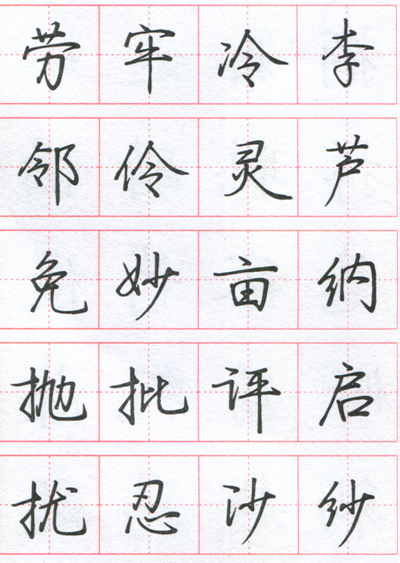 劳牢冷李
邻伶灵芦
免妙亩纳
抛批评启
扰忍沙纱